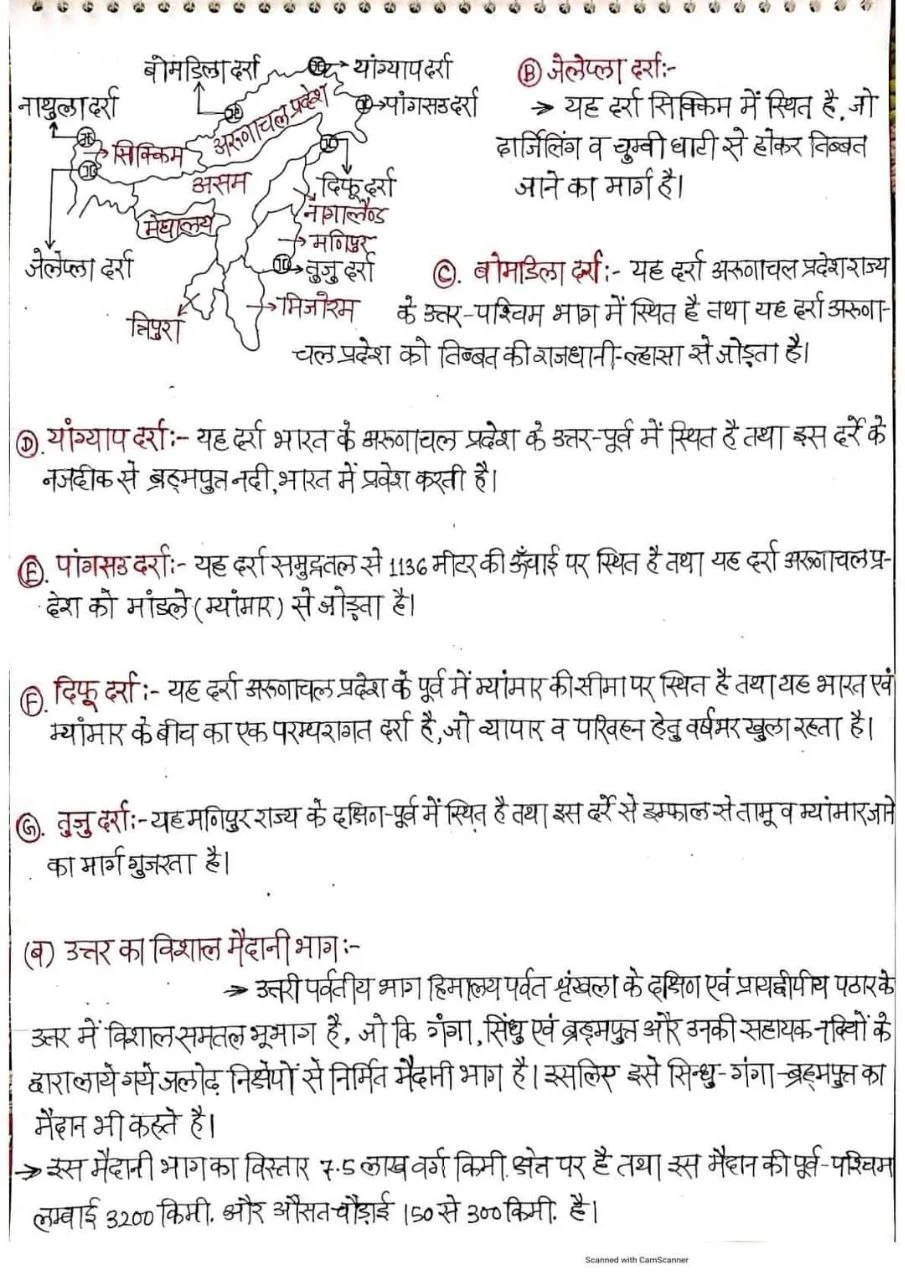 बोमडिला दर्रा
यांग्याप दर्रा
नाथुला दर्रा
पांगसउ दर्रा
अरूणाचल प्रदेश
सिक्किम
असम
दिफू दर्रा
नागालैण्ड
मेघालय
मणिपुर
जेलेप्ला दर्रा
तुजु दर्रा
मिजोरम
त्रिपुरा
(B) जेलेप्ला दर्रा:-
→ यह दर्रा सिक्किम में स्थित है, जो
दार्जिलिंग व चुम्बी घाटी से होकर तिब्बत
जाने का मार्ग है।
(C). बोमडिला दर्रा:- यह दर्रा अरूणाचल प्रदेश राज्य
के उत्तर-पश्चिम भाग में स्थित है तथा यह दर्रा अरूणा-
चल प्रदेश को तिब्बत की राजधानी-ल्हासा से जोड़ता है।
(D). यांग्याप दर्रा:- यह दर्रा भारत के अरूणाचल प्रदेश के उत्तर-पूर्व में स्थित है तथा इस दर्रे के
नजदीक से ब्रह्मपुत्र नदी, भारत में प्रवेश करती है।
(E). पांगसउ दर्रा:- यह दर्रा समुद्रतल से 1136 मीटर की ऊँचाई पर स्थित है तथा यह दर्रा अरूणाचल प्र-
देश को मांडले (म्यांमार) से जोड़ता है।
(F). दिफू दर्रा:- यह दर्रा अरूणाचल प्रदेश के पूर्व में म्यांमार की सीमा पर स्थित है तथा यह भारत एवं
म्यांमार के बीच का एक परम्परागत दर्रा है, जो व्यापार व परिवहन हेतु वर्षभर खुला रहता है।
(G). तुजु दर्रा:- यह मणिपुर राज्य के दक्षिण-पूर्व में स्थित है तथा इस दर्रे से इम्फाल से तामू व म्यांमार जाने
का मार्ग गुजरता है।
(ब) उत्तर का विशाल मैदानी भाग:-
→ उत्तरी पर्वतीय भाग हिमालय पर्वत श्रृंखला के दक्षिण एवं प्रायद्वीपीय पठार के
उत्तर में विशाल समतल भूभाग है, जो कि गंगा, सिंधु एवं ब्रह्मपुत्र और उनकी सहायक नदियों के
द्वारा लाये गये जलोढ़ निक्षेपों से निर्मित मैदानी भाग है। इसलिए इसे सिन्धु-गंगा-ब्रह्मपुत्र का
मैदान भी कहते है।
→ इस मैदानी भाग का विस्तार 7.5 लाख वर्ग किमी. क्षेत्र पर है तथा इस मैदान की पूर्व-पश्चिम
लम्बाई 3200 किमी. और औसत चौड़ाई 150 से 300 किमी. है।
Scanned with CamScanner